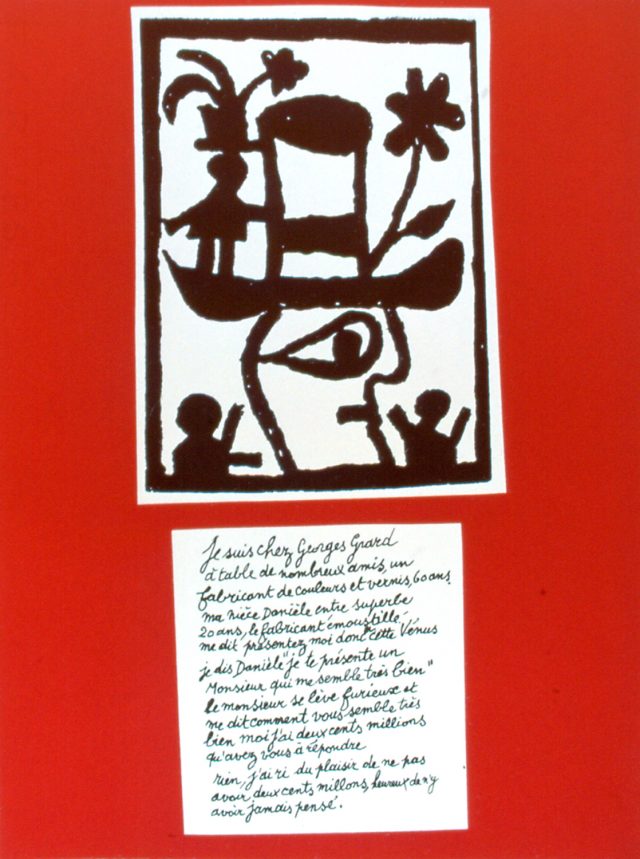 Je suis chez Georges Grard
à table de nombreux amis, un
fabricant de couleurs et vernis, 60 ans,
ma nièce Danièle entre superbe
20 ans, le fabricant émoustillé,
me dit présentez moi donc "cette Vénus
je dis Danièle "je te présente un
Monsieur qui me semble très bien"
le monsieur se lève furieux et
me dit comment vous semble très
bien moi j'ai deux cents millions
qu'avez vous à répondre
rien, j'ai ri du plaisir de ne pas
avoir deux cents millons, heureux de n'y
avoir jamais pensé.